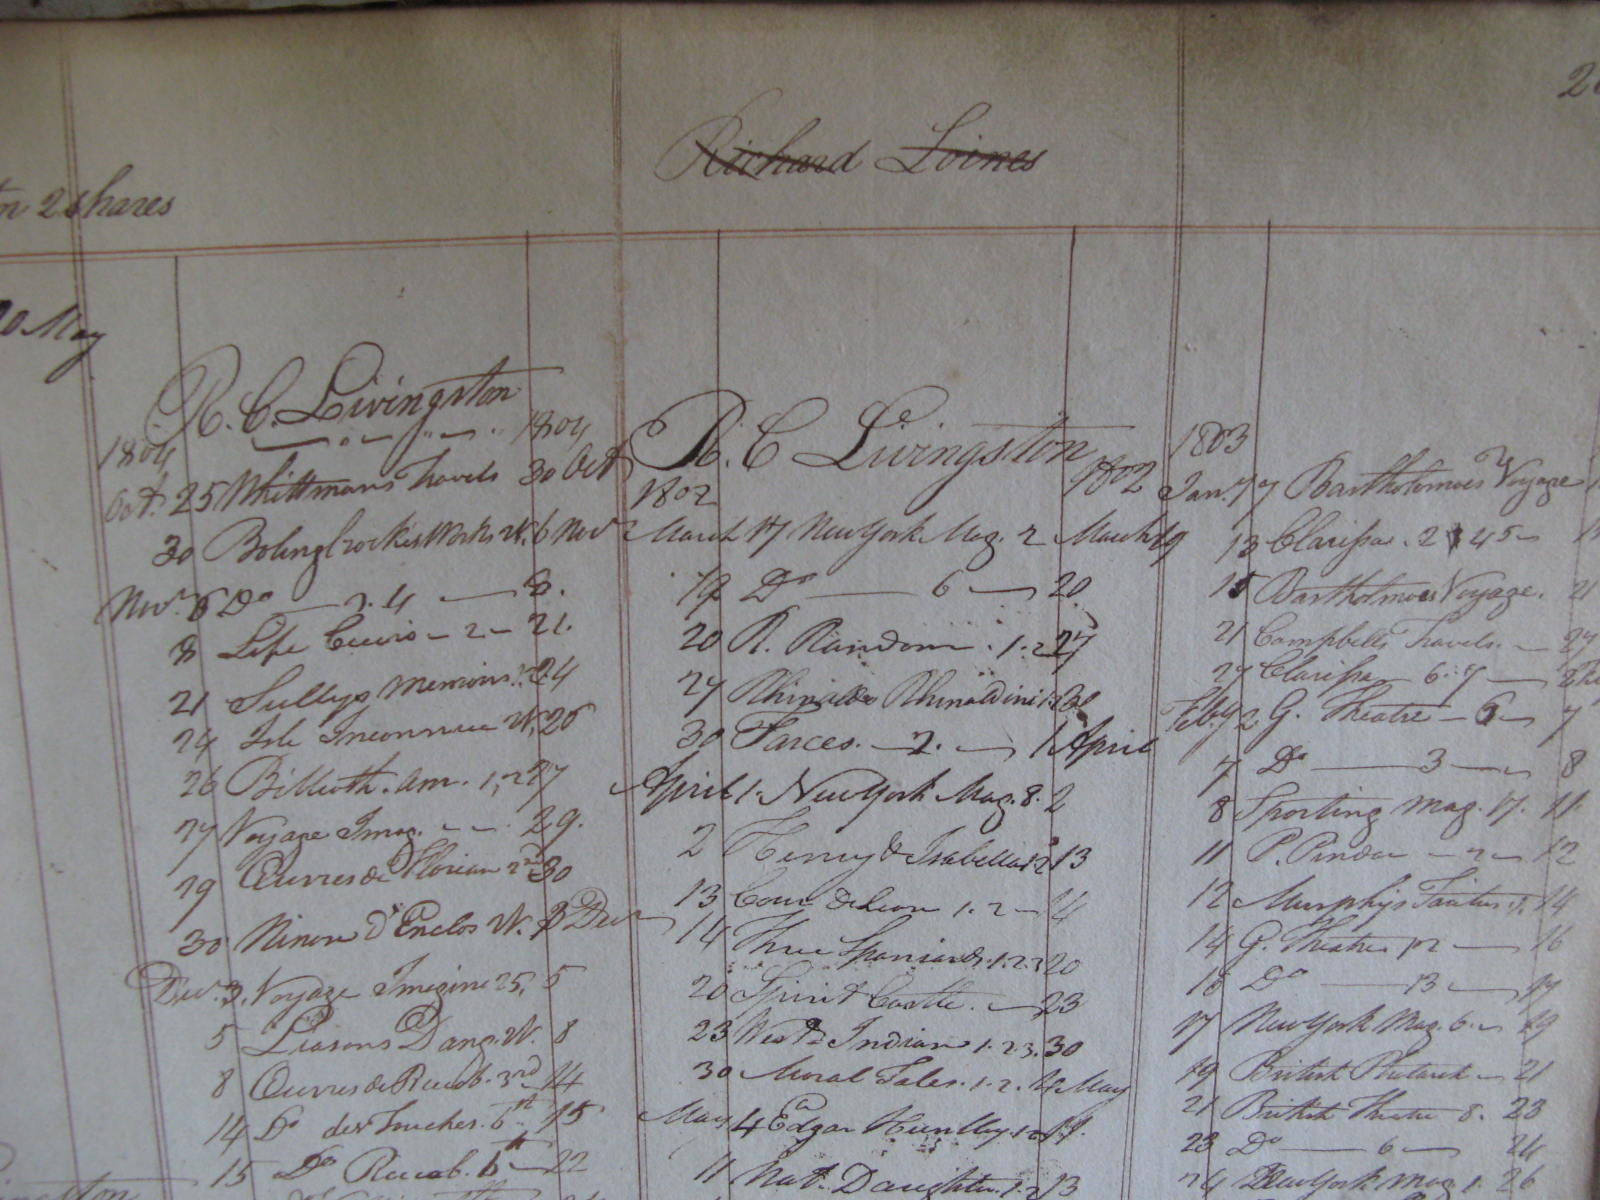 Richard Loines
2 shares
May
R. C. Livingston
1804 1804
Oct. 25 Whittmans Travels 30 Oct
30 Bolingbrookes Works V. 6 Nov
Nov. 6 Do 3.4 8.
8 Life 2 21.
21 Sullys Memoirs 24
24 Isle Inconnue 26
26 Am. 1, 2 27
27 Voyage Imag. 29.
29 Œuvres de Florian 2nd 30
30 Ninon d'Enclos V. 3 Decr
Decr. 3. Voyage Imagine 25, 5
5 Liasons Dang. V. 8
8 Œuvres de 3rd 14
14 Do des Touches. 6th 15
15 Do 22
R. C Livingston
1802 1802
March 17 New York Mag. 2 March 19
19 Do 6 20
20 R. Random. 1.2 27
27 Rhinaldo Rhinaldini 1.2 30
30 Farces. 2. 1 April
April 1. New York Mag. 8. 2
2 Henry & Isabella 1 2 13
13 Cour de Leon 1.2 14
14 Three Spaniards. 1.2.3 20
20 Spirit Castle. 23
23 West Indian 1.2.3. 30
30 Moral Tales. 1.2. 4 May
May 4 Edgar Huntley 11.
11 Nat. Daughter. 1.2 13
1803
Jan. 7 Bartholomoes Voyage
13 Clarissa. 2 4 5
15 Bartholmoes Voyage. 21
21 Campbells Travels. 27
27 Clarissa 6.7
Feby 2 G. Theatre 6 7
7 Do 3 8
8 Sporting Mag. 17. 11
11 P. Pindar 2 12
12 Murphys Tacitus 1. 14
14 G. Theatre 12 16
16 Do 13 17
17 New York Mag. 6. 19
19 British Plutarch 21
21 British Theatre 8. 23
23 Do 6 24
24 New York Mag 1. 26